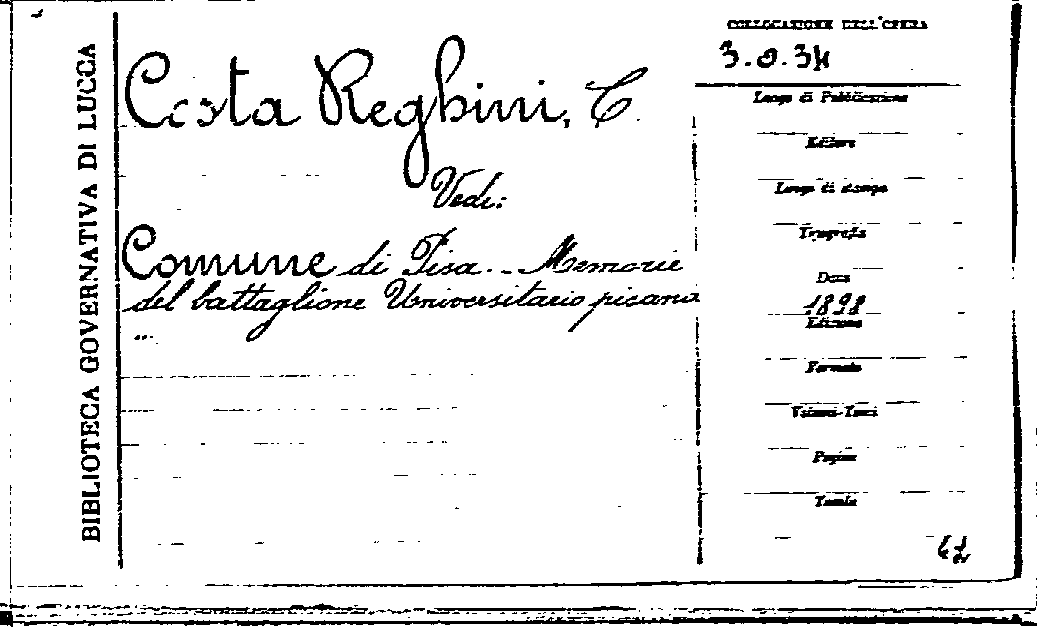 BIBLIOTECA GOVERNATIVA DI LUCCA
Costa Reghini, C.
Vedi:
Comune di Pisa. - Memorie
del battaglione Universitario pisano
COLLOCAZIONE DELL'OPERA
3.0.34
Luogo di Pubblicazione
Editore
Luogo di stampa
Tipografia
Data
1898
Edizione
Formato
Volumi-Tomi
Pagine
Tavole